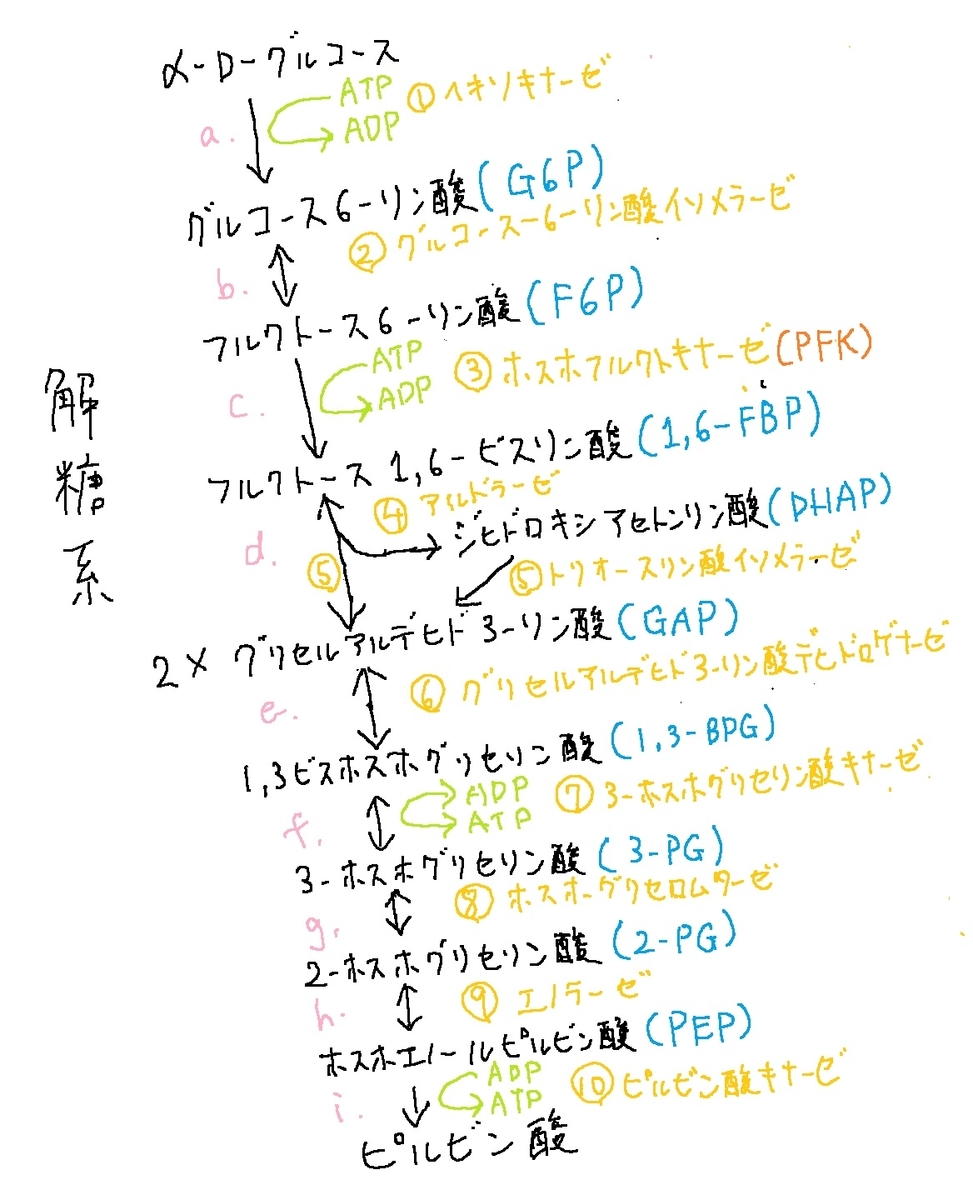 解糖系
α-D-グルコース
a.
ATP
ADP
①ヘキソキナーゼ
グルコース6-リン酸(G6P)
b.
②グルコース-6-リン酸イソメラーゼ
フルクトース6-リン酸(F6P)
c.
ATP
ADP
③ホスホフルクトキナーゼ(PFK)
フルクトース1,6-ビスリン酸(1,6-FBP)
d.
④アルドラーゼ
ジヒドロキシアセトンリン酸(DHAP)
⑤
⑤トリオースリン酸イソメラーゼ
2×グリセルアルデヒド3-リン酸(GAP)
e.
⑥グリセルアルデヒド3-リン酸デヒドロゲナーゼ
1,3ビスホスホグリセリン酸(1,3-BPG)
f.
ADP
ATP
⑦3-ホスホグリセリン酸キナーゼ
3-ホスホグリセリン酸(3-PG)
g.
⑧ホスホ-グリセロムターゼ
2-ホスホグリセリン酸(2-PG)
h.
⑨エノラーゼ
ホスホエノールピルビン酸(PEP)
i.
ADP
ATP
⑩ピルビン酸キナーゼ
ピルビン酸